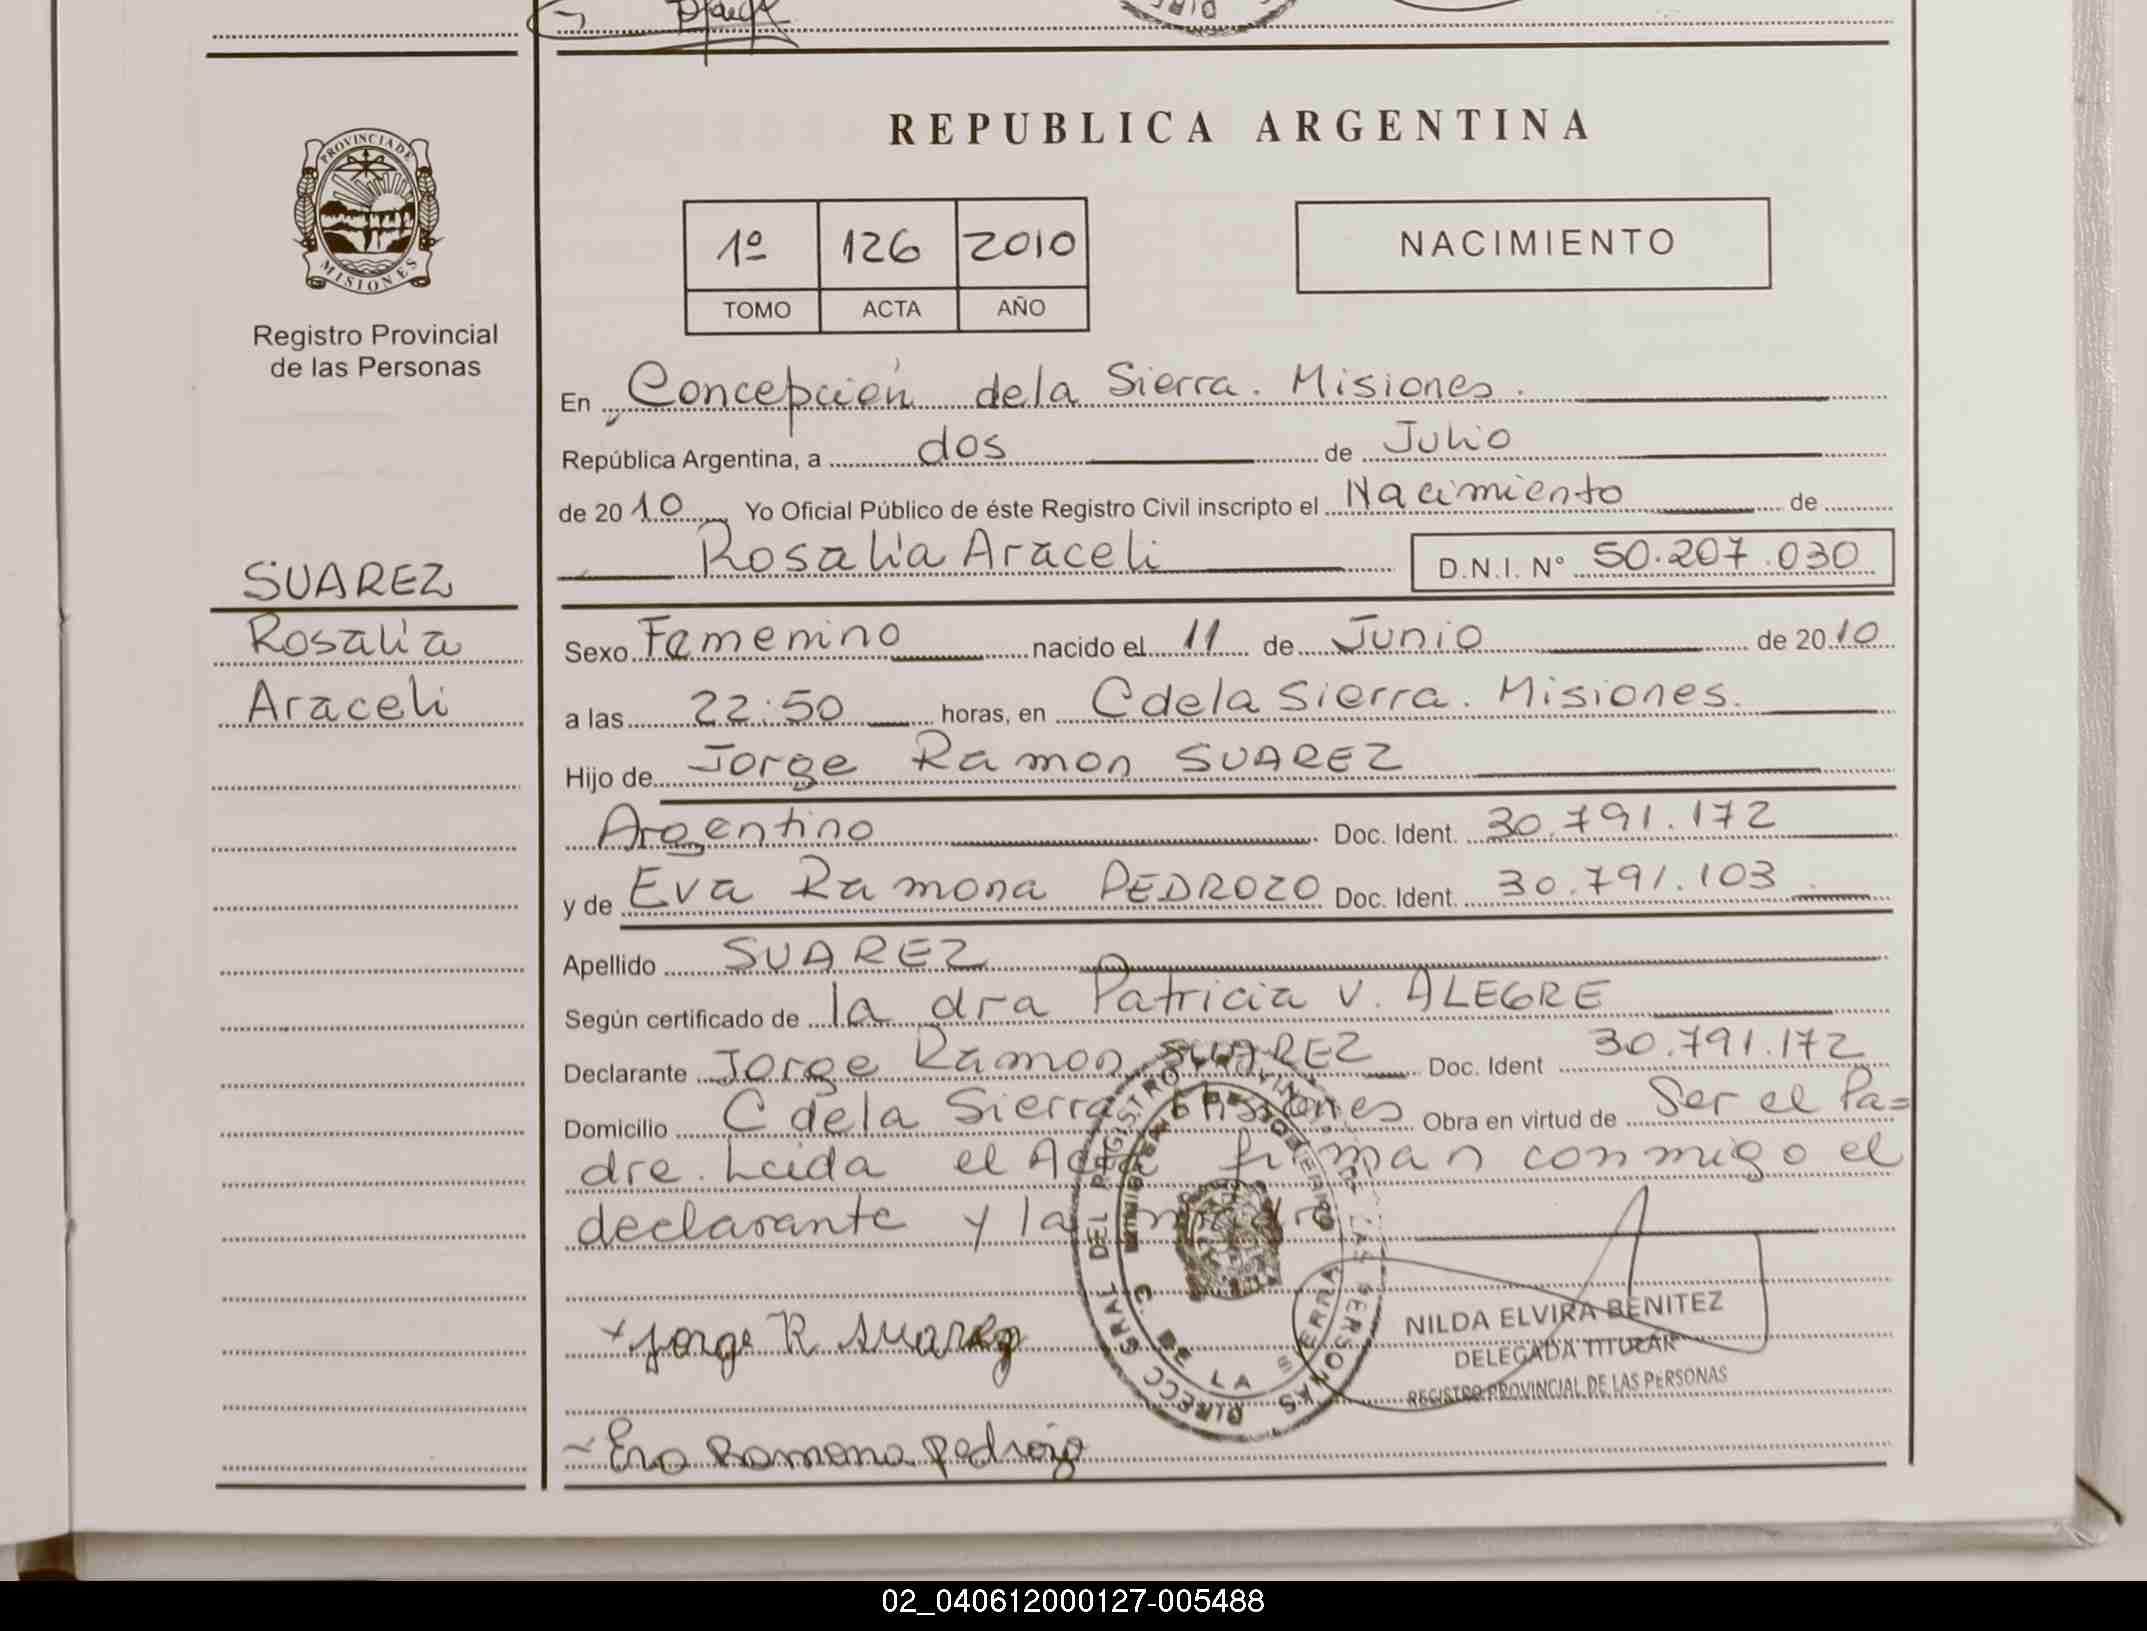 PROVINCIA DE
MISIONES
Registro Provincial
de las Personas
SUAREZ
Rosalía
Araceli
REPUBLICA ARGENTINA
1º 126 2010
TOMO ACTA AÑO
NACIMIENTO
En Concepción de la Sierra. Misiones.
República Argentina, a dos de Julio
de 2010 Yo Oficial Público de éste Registro Civil inscripto el Nacimiento de
Rosalía Araceli D.N.I. Nº 50.207.030
Sexo Femenino nacido el 11 de Junio de 2010
a las 22:50 horas, en C de la Sierra. Misiones.
Hijo de Jorge Ramon SUAREZ
Argentino Doc. Ident. 30.791.172
y de Eva Ramona PEDROZO Doc. Ident. 30.791.103
Apellido SUAREZ
Según certificado de la dra Patricia V. ALEGRE
Declarante Jorge Ramon SUAREZ Doc. Ident 30.791.172
Domicilio C de la Sierra Misiones Obra en virtud de Ser el Pa=
dre. Leida el Acta firman conmigo el
declarante y la madre
DIRECC GRAL DEL REGISTRO PROVIN. DE LAS PERSONAS
C. DE LA SIERRA
NILDA ELVIRA BENITEZ
DELEGADA TITULAR
REGISTRO PROVINCIAL DE LAS PERSONAS
Jorge R Suarez
Eva Ramona Pedrozo
02_040612000127-005488